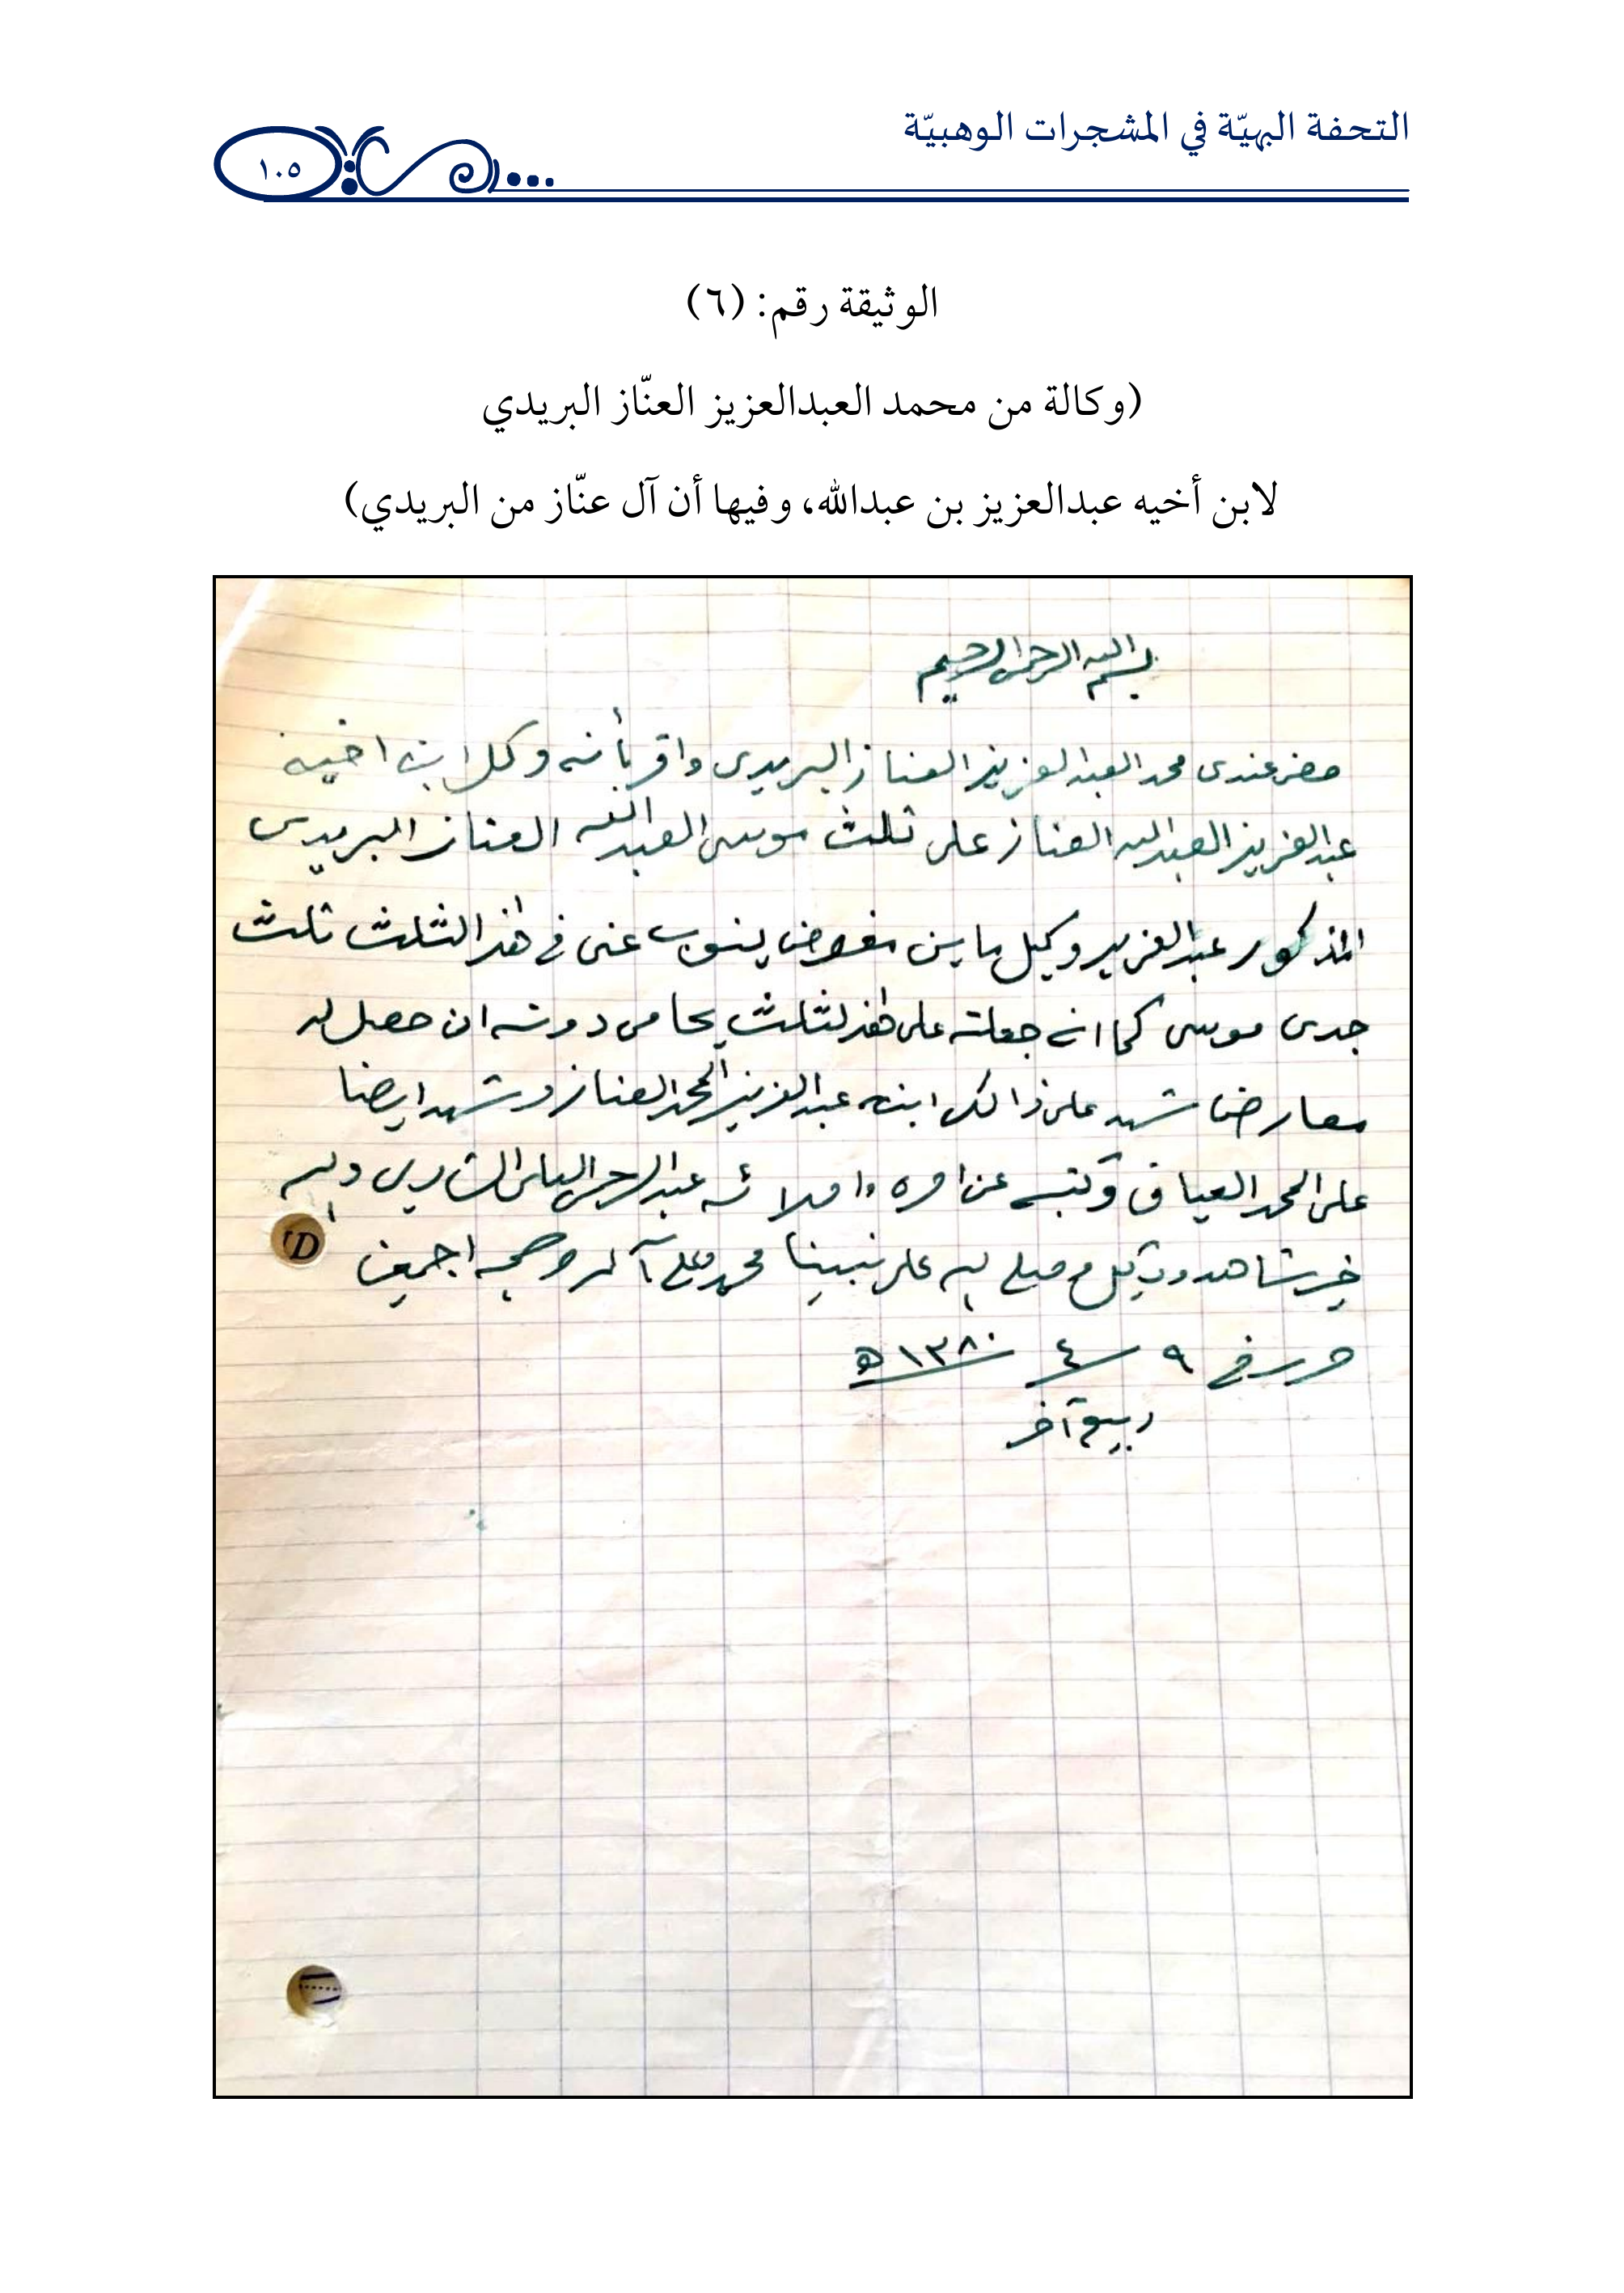 التحفة البهيّة في المشجرات الوهبيّة
١٠٥
الوثيقة رقم: (٦)
(وكالة من محمد العبدالعزيز العنّاز البريدي
لابن أخيه عبدالعزيز بن عبدالله، وفيها أن آل عنّاز من البريدي)
بسم الله الرحمن الرحيم
حضر عندى محمد العبدالعزيز العناز البريدى واقر بأنه وكل ابن اخيه
عبدالعزيز العبدالله العناز على ثلث موسى العبدالله العناز البريدى
المذكور عبدالعزيز وكيل مفوض ينوب عنى في هذا الثلث ثلث
جدى موسى كما انى جعلته على هذا لثلث يحامى دونه ان حصل له
معارض شهد على ذالك ابنه عبدالعزيز المحمد العناز وشهد ايضا
على المحمد العياف وكتبه عن امره واملائه عبدالرحمن العلى والله
خير شاهد ووكيل وصلى الله على نبينا محمد وعلى آله وصحبه اجمعين
حرر في ٩ / ٤ / ١٣٨٠ ه
ربيع آخر